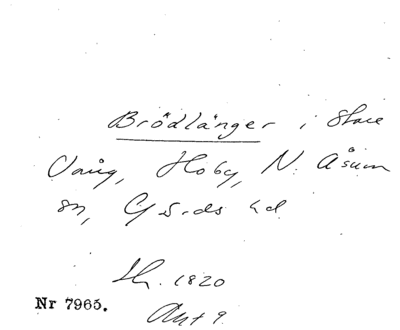 Brödlänger i Stare
Vång, Hoby, N. Åsum
sn, Gärds hd
Sk. 1820
Nr 7965.
Avt 9